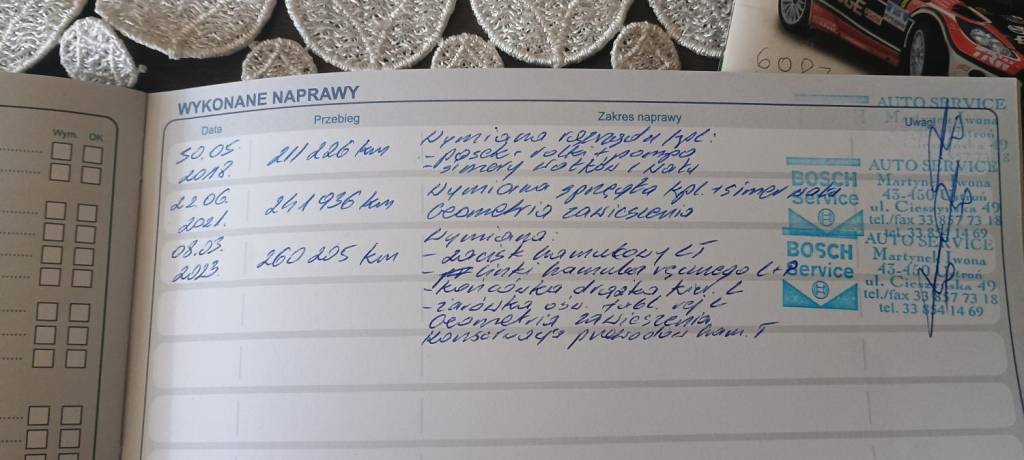 Wym. OK
WYKONANE NAPRAWY
Data Przebieg Zakres naprawy Uwagi
30.05. 2018. 211 226 km
Wymiana rozrządu kpl:
- pasek i rolki i pompa
- simery wałków i wału
22.06. 2021. 241 936 km
Wymiana sprzęgła kpl + simer wału
Geometria zawieszenia
08.03. 2023 260 205 km
Wymiana:
- zacisk hamulcowy LT
- linki hamulca ręcznego L+P
- końcówka drążka kier. L
- żarówka ośw. tabl. rej. L
Geometria zawieszenia
Konserwacja przewodów ham. T
AUTO SERVICE
BOSCH
Service
AUTO SERVICE
Martynek Iwona
43-450
ul. Cieszyńska 49
tel./fax 33 857 73 18
tel. 33 854 14 69
BOSCH
Service
AUTO SERVICE
Martynek Iwona
ul. Cieszyńska 49
tel./fax 33 857 73 18
tel. 33 854 14 69